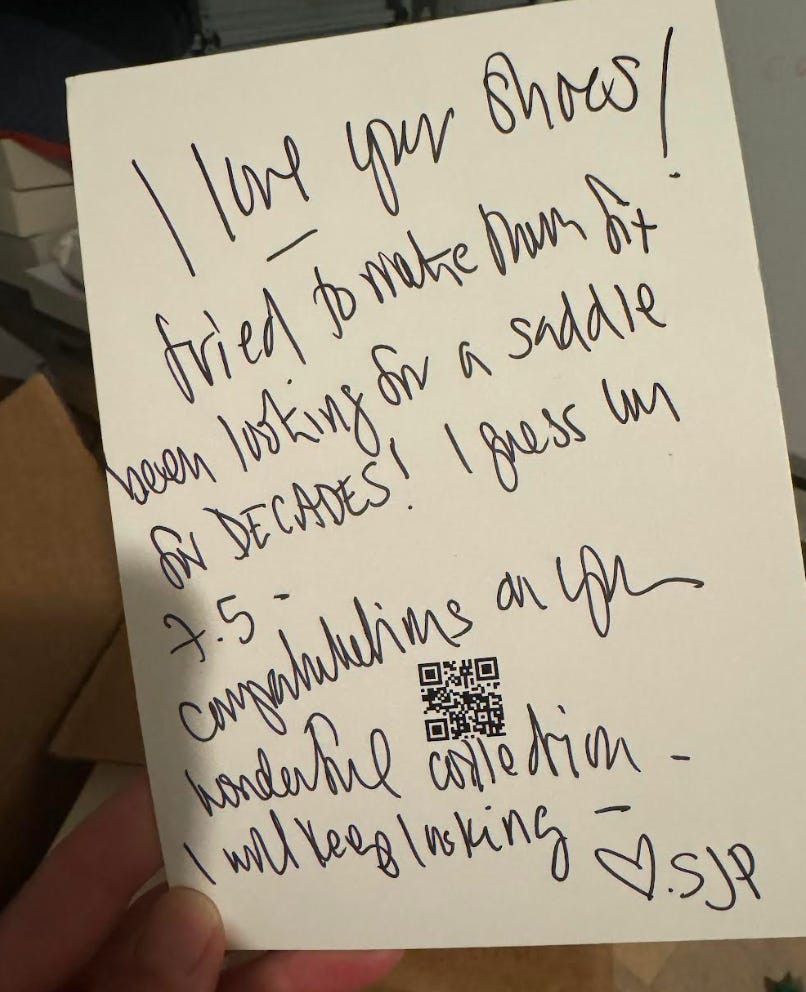 I love your shoes!
tried to make them fit
been looking for a saddle
for DECADES! I guess I'm
7.5 -
congratulations on your
wonderful collection -
I will keep looking -
♡.SJP